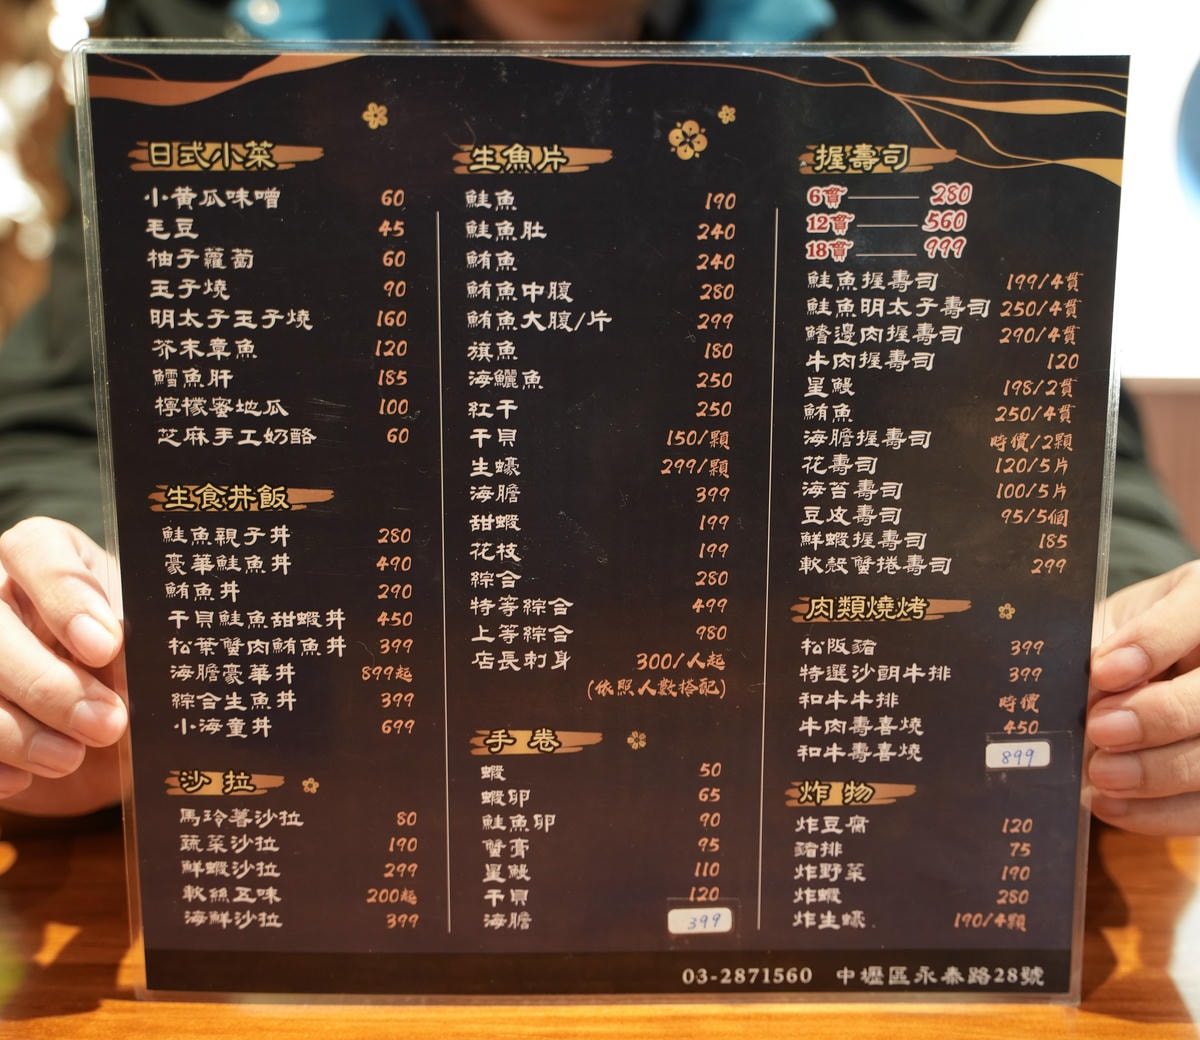 日式小菜
小黃瓜味噌 60
毛豆 45
柚子蘿蔔 60
玉子燒 90
明太子玉子燒 160
芥末章魚 120
鱈魚肝 185
檸檬蜜地瓜 100
芝麻手工奶酪 60
生食丼飯
鮭魚親子丼 280
豪華鮭魚丼 490
鮪魚丼 290
干貝鮭魚甜蝦丼 450
松葉蟹肉鮪魚丼 399
海膽豪華丼 899起
綜合生魚丼 399
小海童丼 699
沙拉
馬玲薯沙拉 80
蔬菜沙拉 190
鮮蝦沙拉 299
軟絲五味 200起
海鮮沙拉 399
生魚片
鮭魚 190
鮭魚肚 240
鮪魚 240
鮪魚中腹 280
鮪魚大腹/片 299
旗魚 180
海鱺魚 250
紅干 250
干貝 150/顆
生蠔 299/顆
海膽 399
甜蝦 199
花枝 199
綜合 280
特等綜合 499
上等綜合 980
店長刺身 300/人起
(依照人數搭配)
手卷
蝦 50
蝦卵 65
鮭魚卵 90
蟹膏 95
星鰻 110
干貝 120
海膽 399
握壽司
6貫 280
12貫 560
18貫 999
鮭魚握壽司 199/4貫
鮭魚明太子壽司 250/4貫
鰭邊肉握壽司 290/4貫
牛肉握壽司 120
星鰻 198/2貫
鮪魚 250/4貫
海膽握壽司 時價/2顆
花壽司 120/5片
海苔壽司 100/5片
豆皮壽司 95/5個
鮮蝦握壽司 185
軟殼蟹捲壽司 299
肉類燒烤
松阪豬 399
特選沙朗牛排 399
和牛牛排 時價
牛肉壽喜燒 450
和牛壽喜燒 899
炸物
炸豆腐 120
豬排 75
炸野菜 190
炸蝦 280
炸生蠔 190/4顆
03-2871560 中壢區永泰路28號